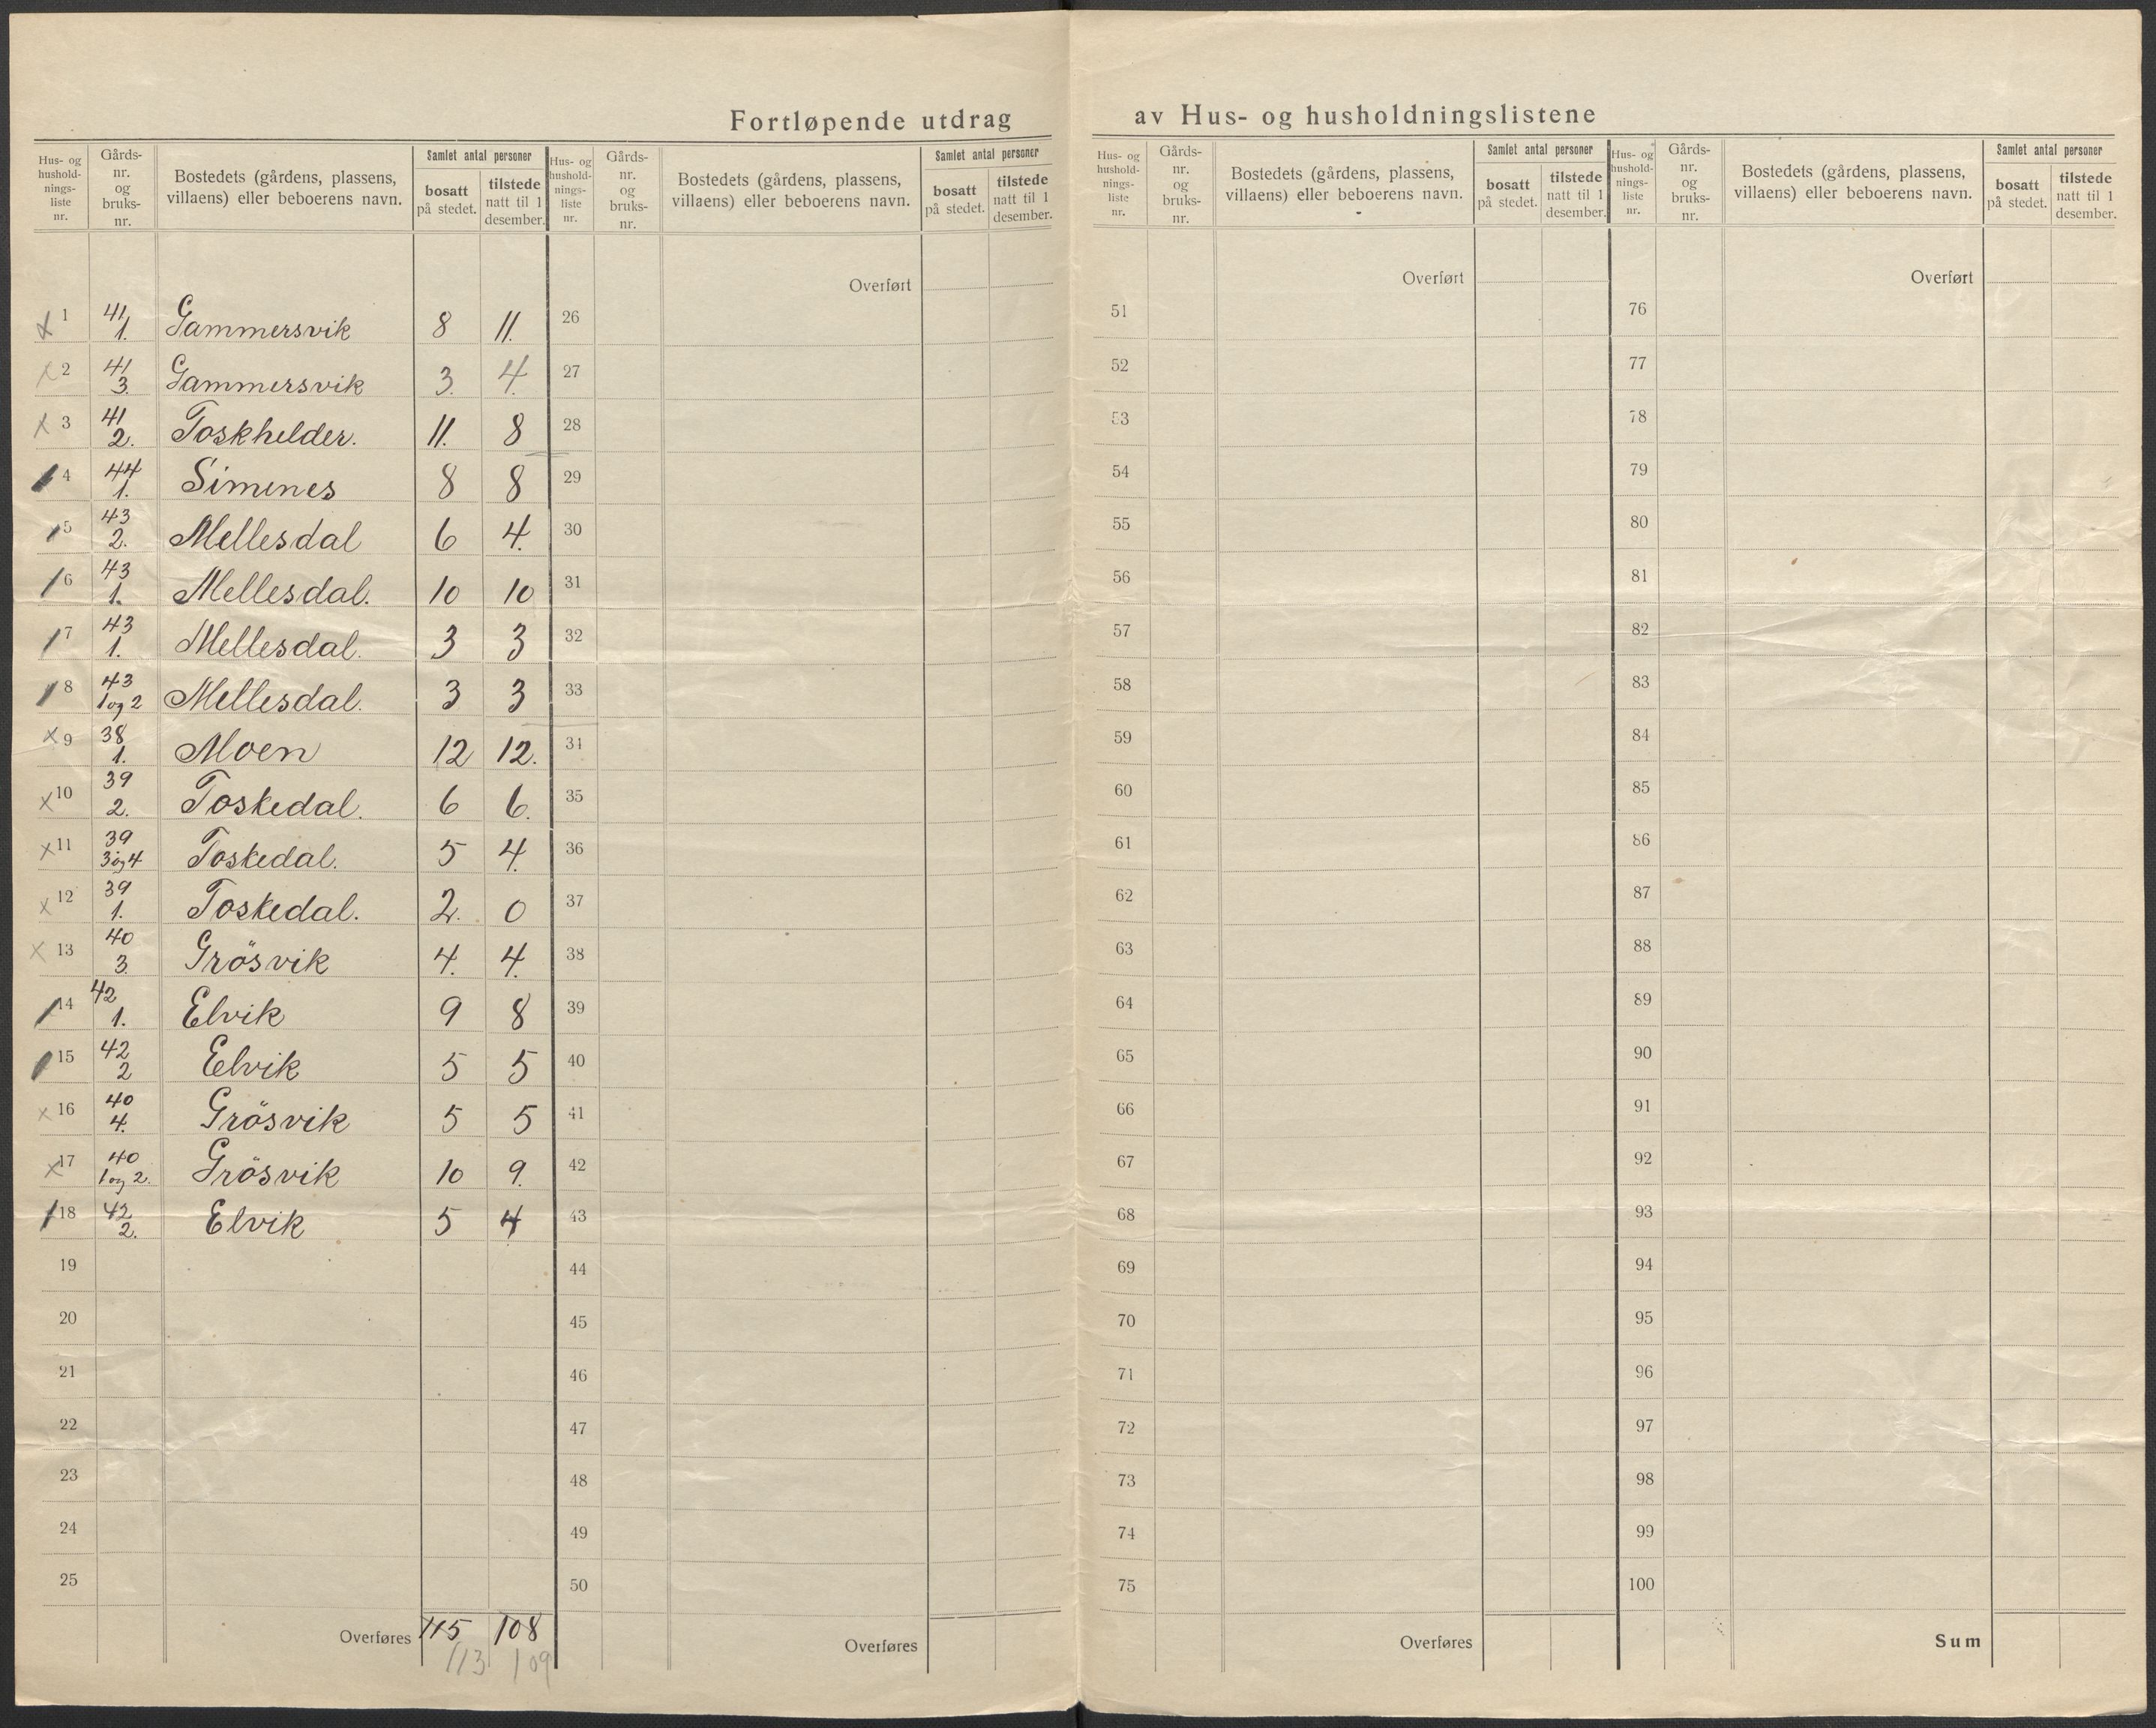 Fortløpende utdrag av Hus- og husholdningslistene
Hus- og hushold- nings- liste nr. | Gårds- nr. og bruks- nr. | Bostedets (gårdens, plassens, villaens) eller beboerens navn. | Samlet antal personer | bosatt på stedet. | tilstede natt til 1 desember.
Hus- og hushold- nings- liste nr. | Gårds- nr. og bruks- nr. | Bostedets (gårdens, plassens, villaens) eller beboerens navn. | Samlet antal personer | bosatt på stedet. | tilstede natt til 1 desember.
Hus- og hushold- nings- liste nr. | Gårds- nr. og bruks- nr. | Bostedets (gårdens, plassens, villaens) eller beboerens navn. | Samlet antal personer | bosatt på stedet. | tilstede natt til 1 desember.
Hus- og hushold- nings- liste nr. | Gårds- nr. og bruks- nr. | Bostedets (gårdens, plassens, villaens) eller beboerens navn. | Samlet antal personer | bosatt på stedet. | tilstede natt til 1 desember.
x 1 41/1. Gammersvik 8 11.
x 2 41/3. Gammersvik 3. 4.
x 3 41/2. Toskhelder. 11. 8
/ 4 44/1. Simenes 8 8
/ 5 43/2. Mellesdal 6 4.
/ 6 43/1. Mellesdal. 10 10
/ 7 43/1. Mellesdal. 3 3
/ 8 43/1 og 2 Mellesdal. 3 3
x 9 38/1. Moen 12 12.
x 10 39/2. Toskedal. 6 6.
x 11 39/3 og 4 Toskedal. 5 4.
x 12 39/1. Toskedal. 2. 0
x 13 40/3. Grösvik 4. 4.
/ 14 42/1. Elvik 9 8
/ 15 42/2 Eelvik 5 5
x 16 40/4. Grösvik 5 5
x 17 40/1 og 2. Grösvik 10 9.
/ 18 42/2. Elvik 5 4
19
20
21
22
23
24
25
Overføres 115 108
113 109
Overført
26
27
28
29
30
31
32
33
34
35
36
37
38
39
40
41
42
43
44
45
46
47
48
49
50
Overføres
Overført
51
52
53
54
55
56
57
58
59
60
61
62
63
64
65
66
67
68
69
70
71
72
73
74
75
Overføres
Overført
76
77
78
79
80
81
82
83
84
85
86
87
88
89
90
91
92
93
94
95
96
97
98
99
100
Sum